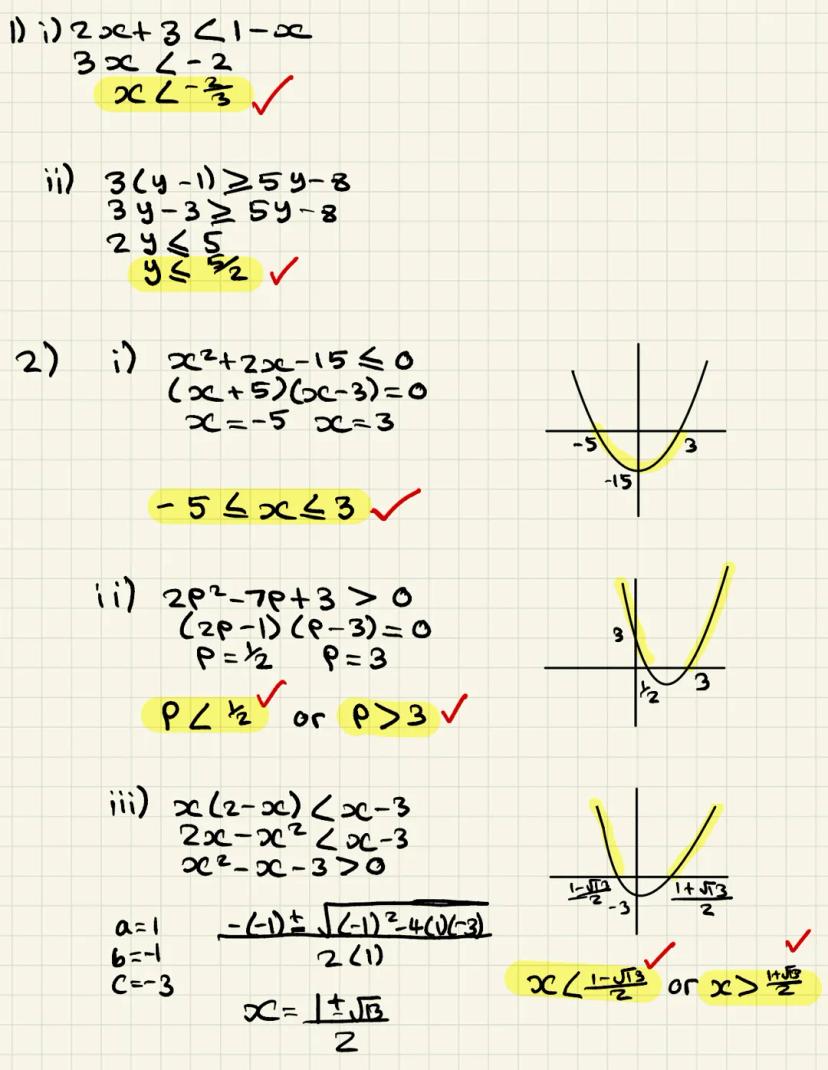 1) i) 2x + 3 < 1 - x
3x < -2
x < -2/3
ii) 3(y - 1) ≥ 5y - 8
3y - 3 ≥ 5y - 8
2y ≤ 5
y ≤ 5/2
2) i) x² + 2x - 15 ≤ 0
(x + 5)(x - 3) = 0
x = -5 x = 3
-5 3
-15
-5 ≤ x ≤ 3
ii) 2p² - 7p + 3 > 0
(2p - 1)(p - 3) = 0
p = 1/2 p = 3
3
1/2 3
p < 1/2 or p > 3
iii) x(2 - x) < x - 3
2x - x² < x - 3
x² - x - 3 > 0
(1-√13)/2 -3 (1+√13)/2
a = 1
b = -1
c = -3
(-(-1) ± √((-1)² - 4(1)(-3)))/2(1)
x = (1 ± √13)/2
x < (1-√13)/2 or x > (1+√13)/2